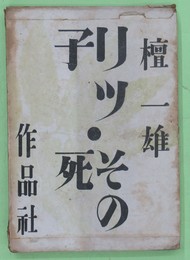 檀一雄
リツ子・その死
作品社